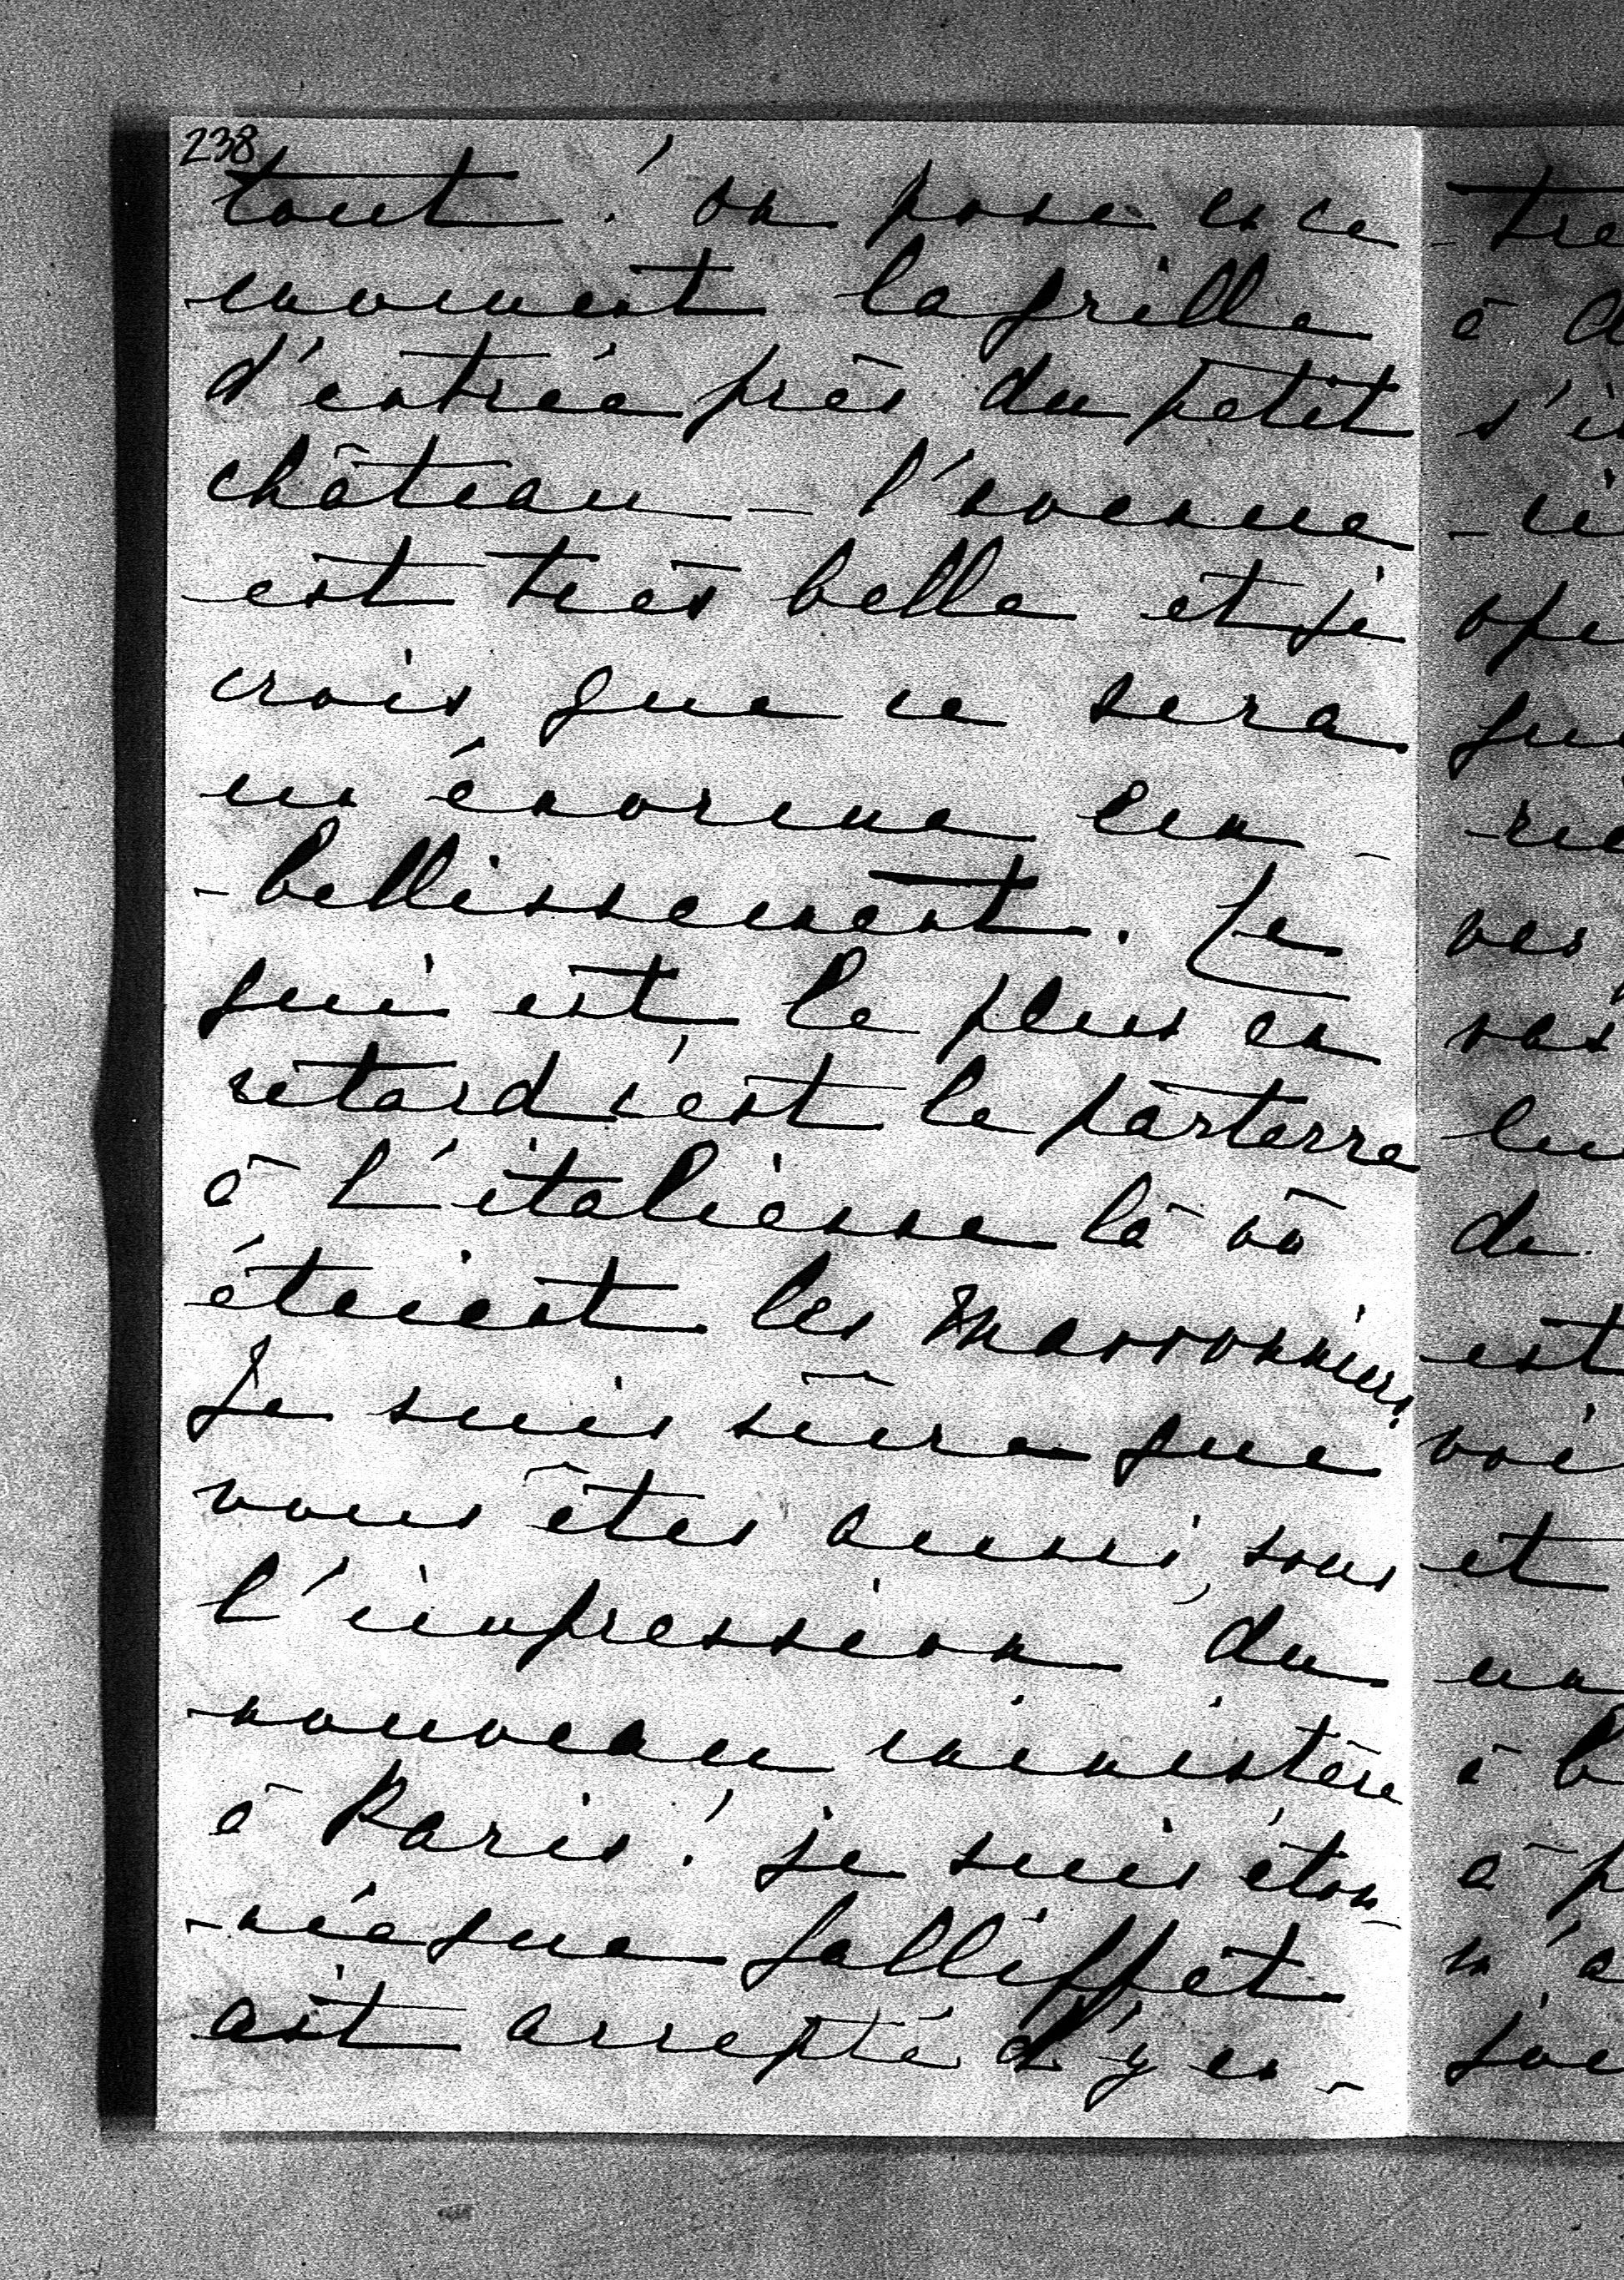 238
tout! on pose en ce
moment la grille
d'entrée près du petit
château — l'avenue
est très belle et je
crois que ce sera
un énorme em-
-bellissement. Ce
qui est le plus en
retard c'est le parterre
à l'italienne là où
étaient les marronniers.
Je suis sûre que
vous êtes aussi, sous
l'impression du
nouveau ministère
à Paris! je suis éton-
-née que Galliffet
ait accepté d'y en-
-tre
à
s'i
ope
que
-rie
ves
de
est
voi
et
un
à
à
n'a